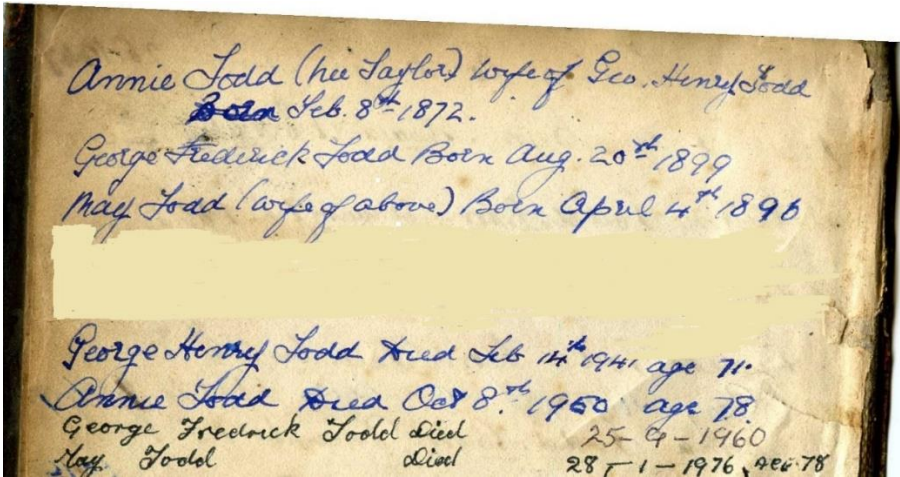 Annie Todd (nee Taylor) wife of Geo. Henry Todd
Born Feb. 8th 1872.
George Frederick Todd Born Aug. 20th 1899
May Todd (wife of above) Born April 4th 1896
George Henry Todd Died Feb 14th 1941 age 71.
Annie Todd Died Oct 8th. 1950 age 78
George Fredrick Todd Died 25-9-1960
May Todd Died 28-1-1976, AGE 78